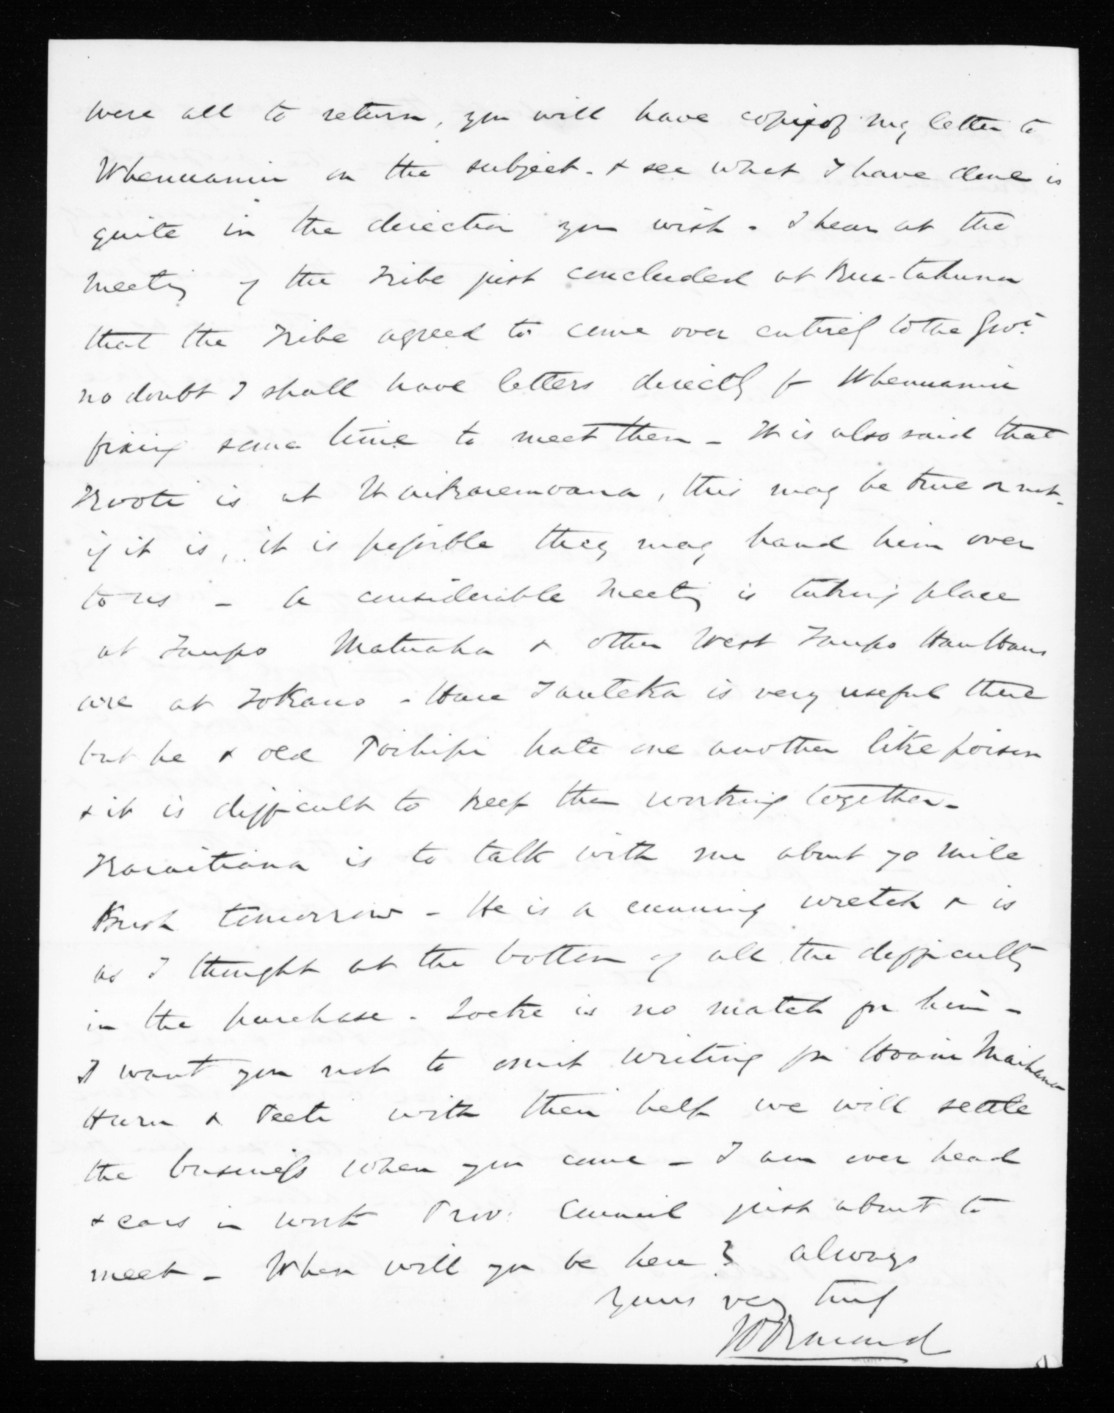 were all to return, you will have copy of my letter to
Whenuanui on the subject - & see what I have done is
quite in the direction you wish - I hear at the
meeting of the Tribe just concluded at Rua-tahuna
that the Tribe agreed to come over entirely to the Govt
no doubt I shall have letters directly fr Whenuanui
fixing some time to meet them - It is also said that
Kooti is at Waikaremoana, this may be true or not -
if it is, it is possible they may hand him over
to us - A considerable meeting is taking place
at Taupo Matuaha & other West Taupo Hau Haus
are at Tokano - Hare Tauteka is very useful there
but he & old Poihipi hate one another like poison
& it is difficult to keep them working together -
Karaitiana is to talk with me about 70 mile
Bush tomorrow - He is a cunning wretch & is
as I thought at the bottom of all the difficulty
in the purchase - Locke is no match for him -
I want you not to omit writing for Hoani Maihana
Huru & Peeti with their help we will settle
the business when you come - I am over head
& ears in work Prov. Council just about to
meet - When will you be here? always
Yours very truly
JD Ormond